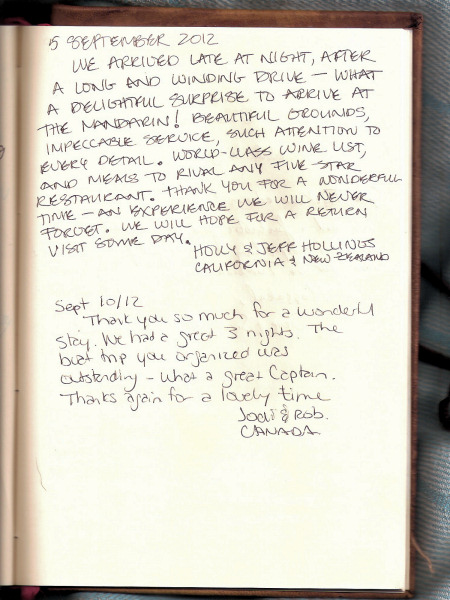 5 SEPTEMBER 2012
WE ARRIVED LATE AT NIGHT, AFTER
A LONG AND WINDING DRIVE – WHAT
A DELIGHTFUL SURPRISE TO ARRIVE AT
THE MANDARIN! BEAUTIFUL GROUNDS,
IMPECCABLE SERVICE, SUCH ATTENTION TO
EVERY DETAIL. WORLD-CLASS WINE LIST,
AND MEALS TO RIVAL ANY FIVE STAR
RESTAURANT. THANK YOU FOR A WONDERFUL
TIME – AN EXPERIENCE WE WILL NEVER
FORGET. WE WILL HOPE FOR A RETURN
VISIT SOME DAY.
HOLLY & JEFF HOLLINGS
CALIFORNIA & NEW ZEALAND
Sept 10/12
Thank you so much for a wonderful
stay. We had a great 3 nights. The
boat trip you organized was
outstanding – what a great Captain.
Thanks again for a lovely time
Jodi & Rob.
CANADA